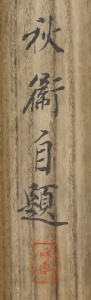 秋衛自題